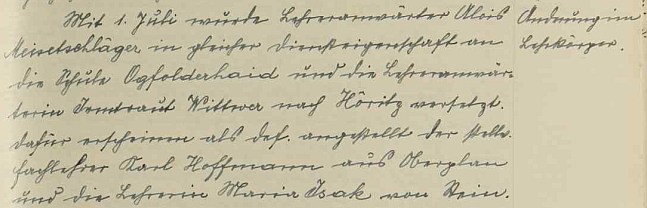 Mit 1. Juli wurde Lehreranwärter Alois
Meisetschläger in gleicher Diensteigenschaft an
die Schule Ogfolderhaid und die Lehreranwär-
terin Irmtraut Wittwer nach Höritz versetzt.
Dafür erscheinen als def. angestellt der stellv.
Fachlehrer Karl Hoffmann aus Oberplan
und die Lehrerin Maria Isak von Stein.
Änderung im
Lehrkörper.